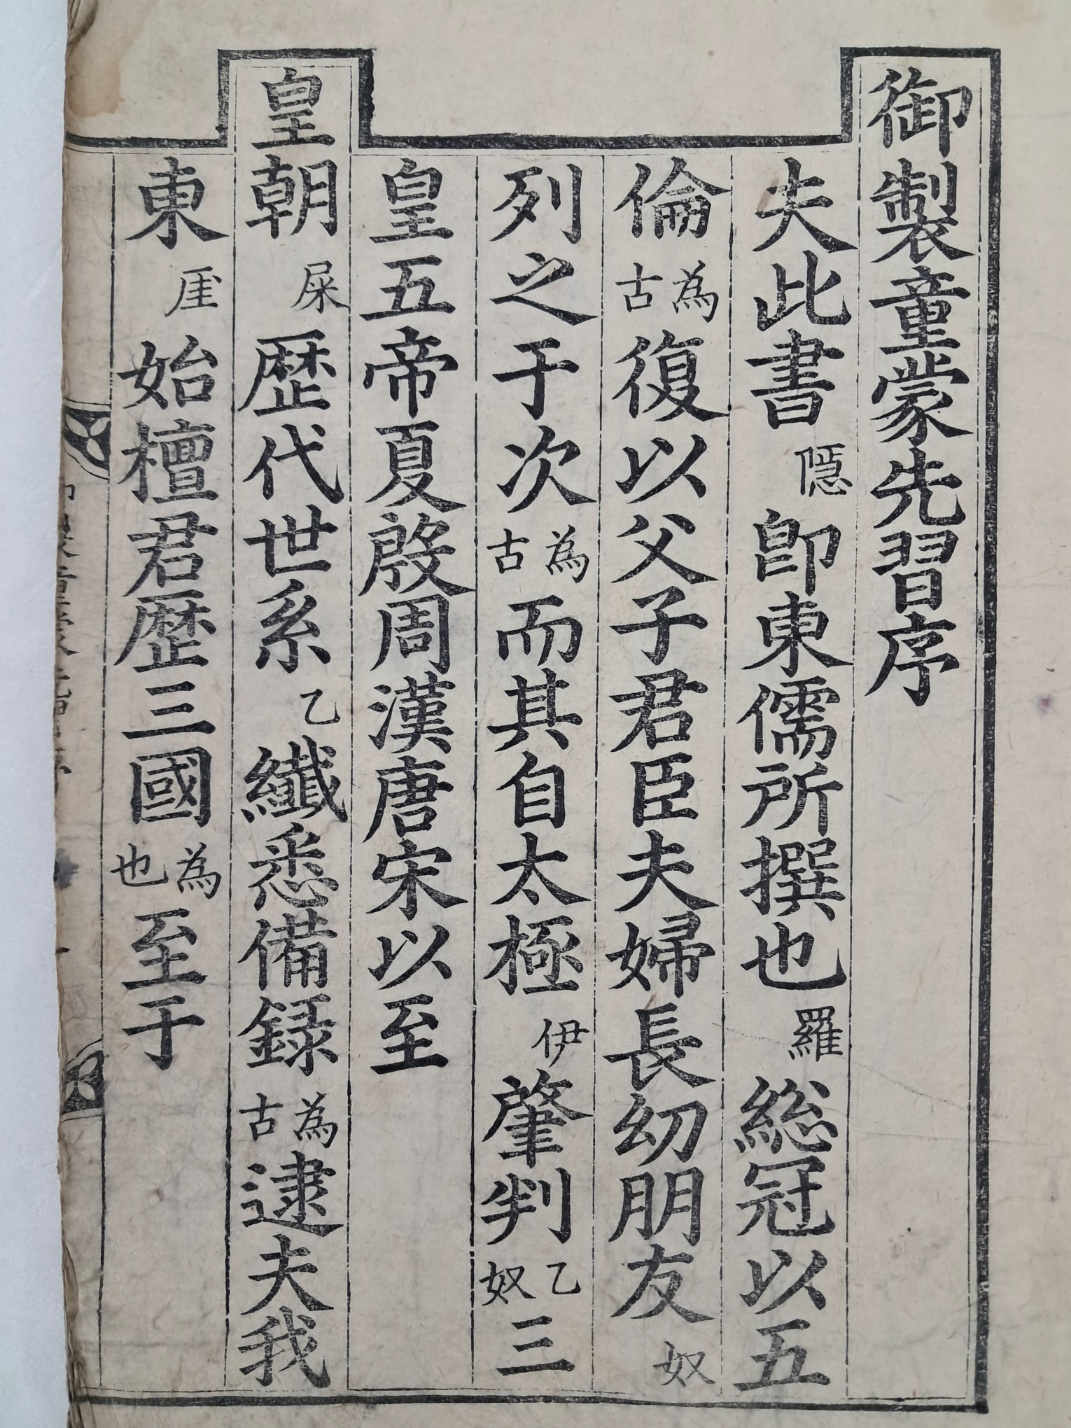 御製童蒙先習序
夫此書隱卽東儒所撰也羅総冠以五
倫為古復以父子君臣夫婦長幼朋友奴
列之于次為古而其自太極伊肇判乙奴三
皇五帝夏殷周漢唐宋以至
皇朝屎歷代世系乙纎悉備録為古逮夫我
東厓始檀君歷三國為也至于